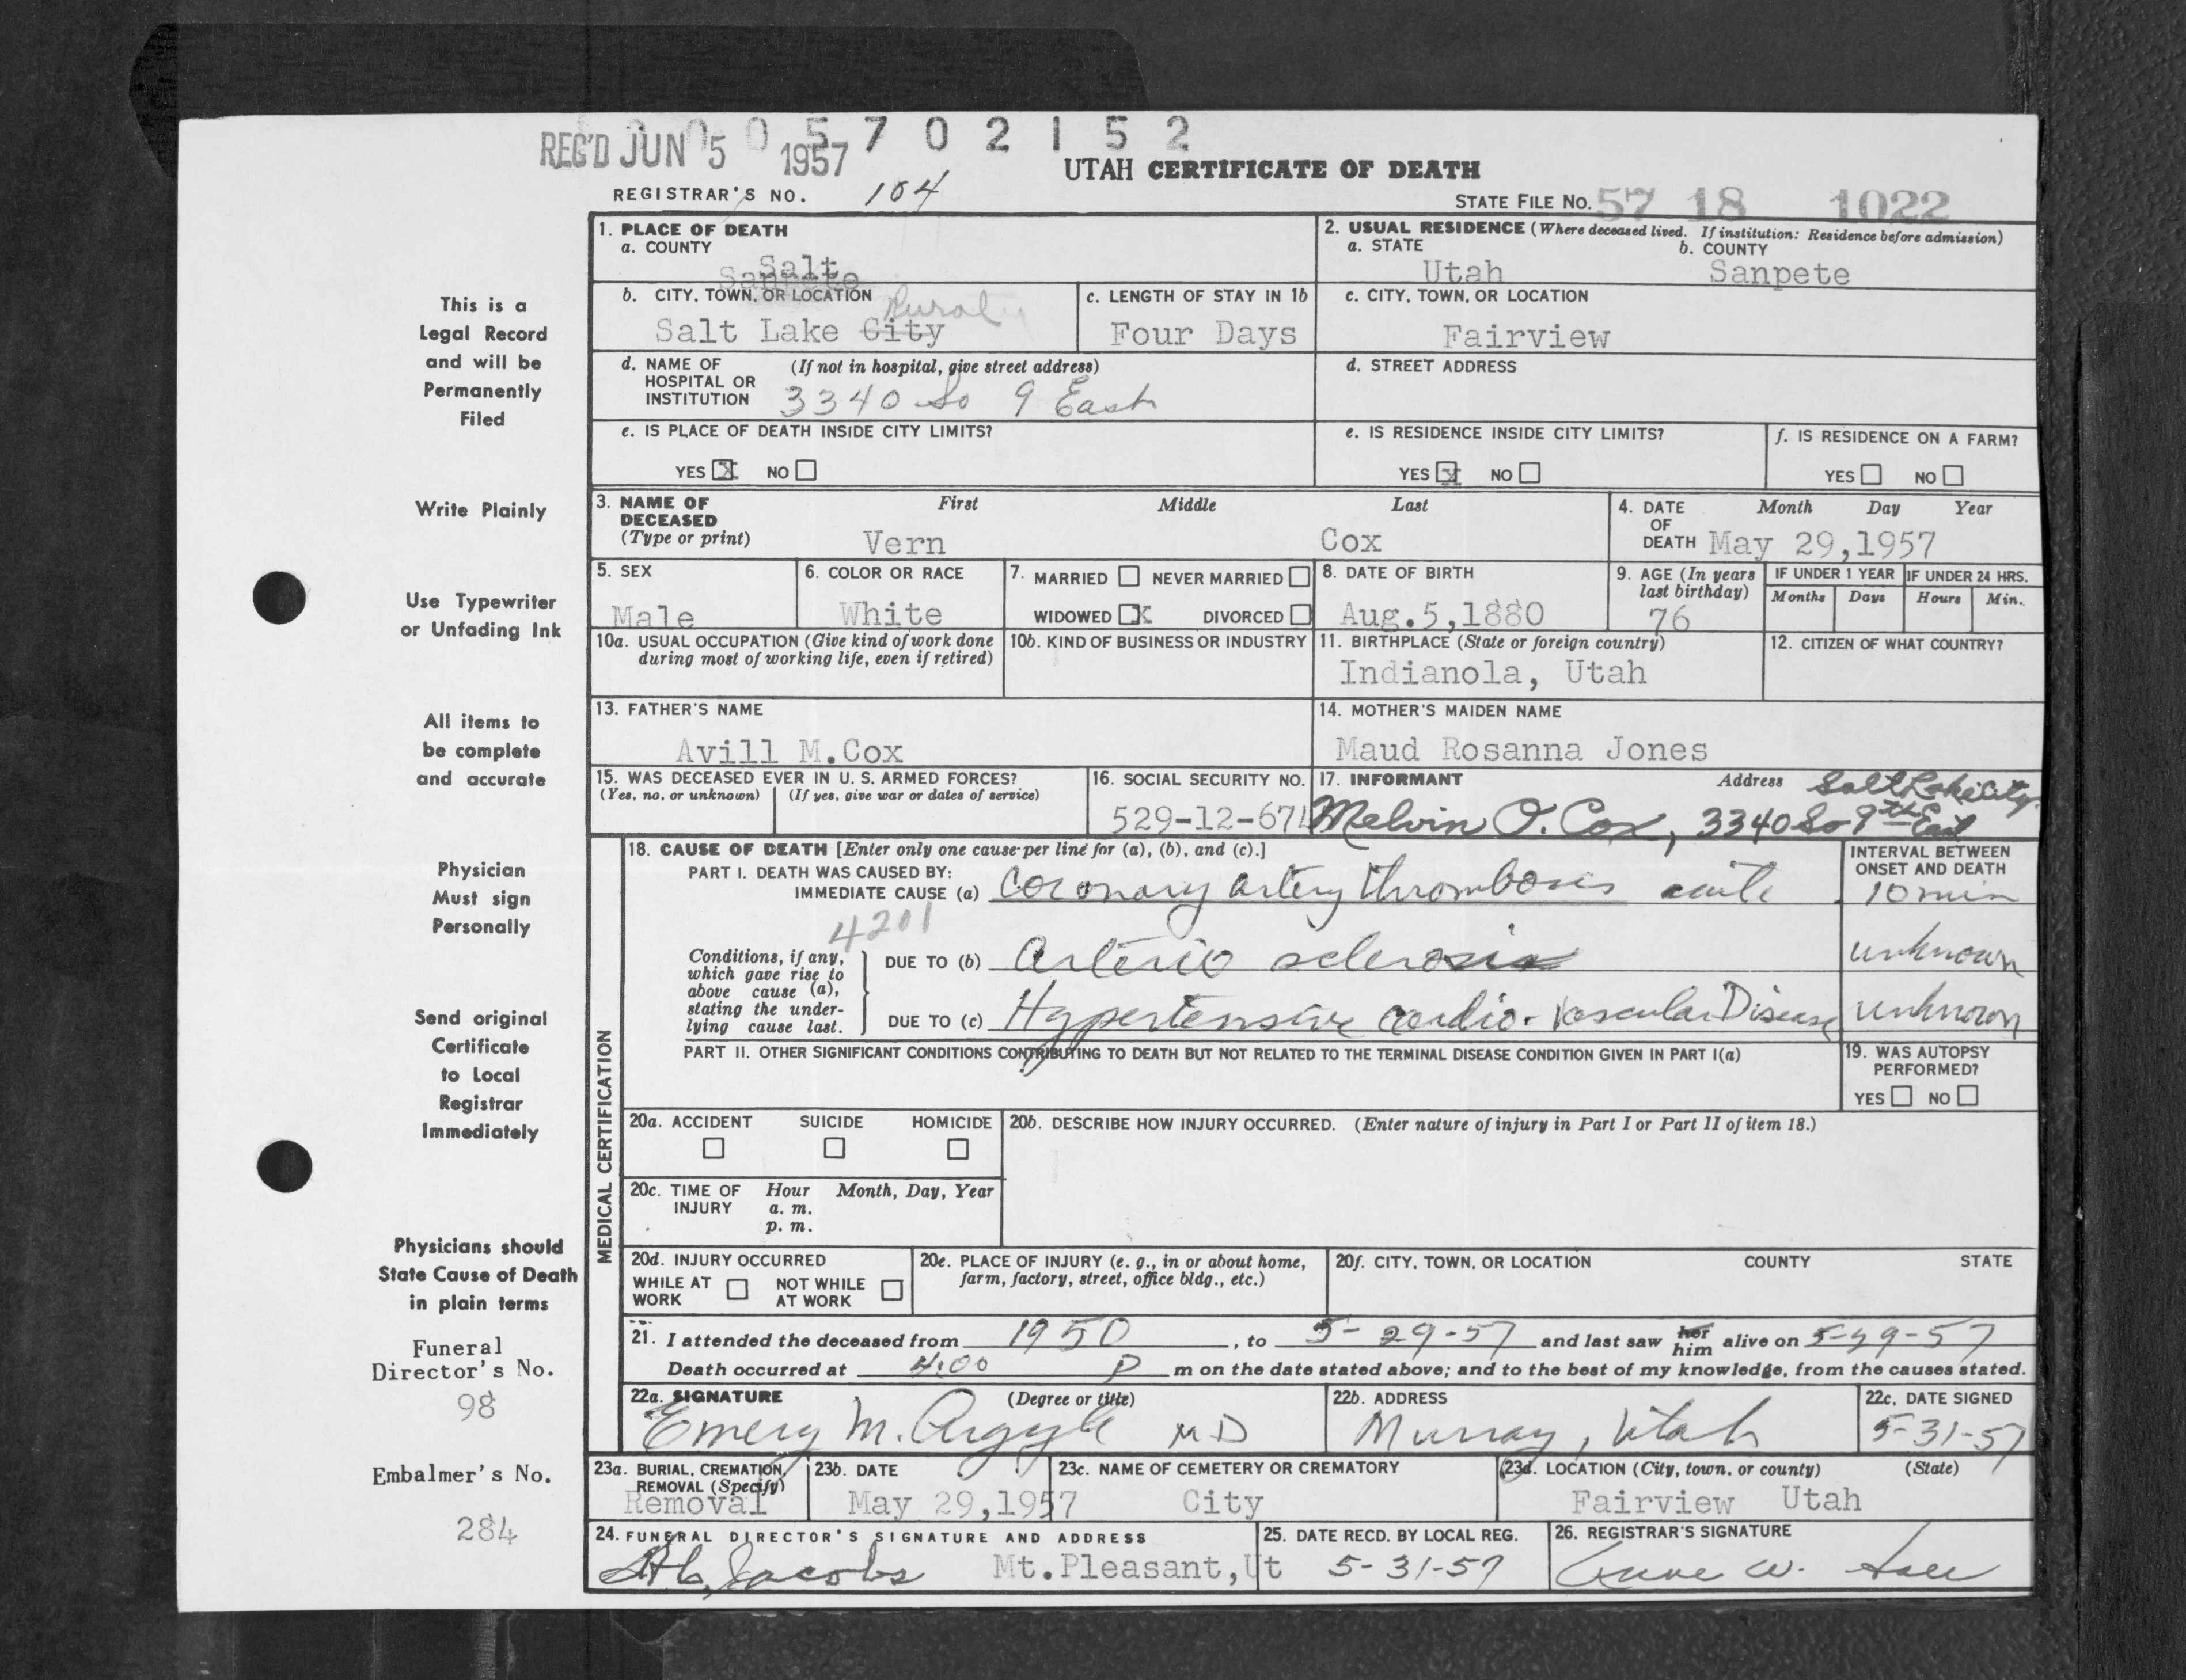 0 0 0 5 7 0 2 1 5 2
REG'D JUN 5 1957
UTAH CERTIFICATE OF DEATH
REGISTRAR'S NO. 104
STATE FILE NO. 57 18 1022
This is a
Legal Record
and will be
Permanently
Filed
Write Plainly
Use Typewriter
or Unfading Ink
All items to
be complete
and accurate
Physician
Must sign
Personally
Send original
Certificate
to Local
Registrar
Immediately
Physicians should
State Cause of Death
in plain terms
Funeral
Director's No.
98
Embalmer's No.
284
1. PLACE OF DEATH
a. COUNTY
Salt
Sanpete
2. USUAL RESIDENCE (Where deceased lived. If institution: Residence before admission)
a. STATE b. COUNTY
Utah Sanpete
b. CITY, TOWN, OR LOCATION
Rural
Salt Lake City
c. LENGTH OF STAY IN 1b
Four Days
c. CITY, TOWN, OR LOCATION
Fairview
d. NAME OF (If not in hospital, give street address)
HOSPITAL OR
INSTITUTION 3340 So 9 East
d. STREET ADDRESS
e. IS PLACE OF DEATH INSIDE CITY LIMITS?
YES X NO
e. IS RESIDENCE INSIDE CITY LIMITS?
YES X NO
f. IS RESIDENCE ON A FARM?
YES NO
3. NAME OF First Middle Last
DECEASED
(Type or print) Vern Cox
4. DATE Month Day Year
OF
DEATH May 29,1957
5. SEX
Male
6. COLOR OR RACE
White
7. MARRIED NEVER MARRIED
WIDOWED X DIVORCED
8. DATE OF BIRTH
Aug.5,1880
9. AGE (In years
last birthday)
76
IF UNDER 1 YEAR IF UNDER 24 HRS.
Months Days Hours Min.
10a. USUAL OCCUPATION (Give kind of work done
during most of working life, even if retired)
10b. KIND OF BUSINESS OR INDUSTRY
11. BIRTHPLACE (State or foreign country)
Indianola, Utah
12. CITIZEN OF WHAT COUNTRY?
13. FATHER'S NAME
Avill M.Cox
14. MOTHER'S MAIDEN NAME
Maud Rosanna Jones
15. WAS DECEASED EVER IN U. S. ARMED FORCES?
(Yes, no, or unknown) (If yes, give war or dates of service)
16. SOCIAL SECURITY NO.
529-12-671
17. INFORMANT Address Salt Lake City
Melvin O. Cox, 3340 So 9th East
MEDICAL CERTIFICATION
18. CAUSE OF DEATH [Enter only one cause per line for (a), (b), and (c).]
INTERVAL BETWEEN
ONSET AND DEATH
PART I. DEATH WAS CAUSED BY:
IMMEDIATE CAUSE (a) Coronary artery thrombosis acute 10 min
4201
Conditions, if any,
which gave rise to
above cause (a),
stating the under-
lying cause last.
DUE TO (b) Arterio sclerosis unknown
DUE TO (c) Hypertensive cardio-vascular Disease unknown
PART II. OTHER SIGNIFICANT CONDITIONS CONTRIBUTING TO DEATH BUT NOT RELATED TO THE TERMINAL DISEASE CONDITION GIVEN IN PART I(a)
19. WAS AUTOPSY
PERFORMED?
YES NO
20a. ACCIDENT SUICIDE HOMICIDE
20b. DESCRIBE HOW INJURY OCCURRED. (Enter nature of injury in Part I or Part II of item 18.)
20c. TIME OF Hour Month, Day, Year
INJURY a. m.
p. m.
20d. INJURY OCCURRED
WHILE AT NOT WHILE
WORK AT WORK
20e. PLACE OF INJURY (e. g., in or about home,
farm, factory, street, office bldg., etc.)
20f. CITY, TOWN, OR LOCATION COUNTY STATE
21. I attended the deceased from 1950, to 5-29-57 and last saw her him alive on 5-29-57
Death occurred at 4:00 P m on the date stated above; and to the best of my knowledge, from the causes stated.
22a. SIGNATURE (Degree or title)
Emery M. Argyle MD
22b. ADDRESS
Murray, Utah
22c. DATE SIGNED
5-31-57
23a. BURIAL, CREMATION,
REMOVAL (Specify)
Removal
23b. DATE
May 29,1957
23c. NAME OF CEMETERY OR CREMATORY
City
23d. LOCATION (City, town, or county) (State)
Fairview Utah
24. FUNERAL DIRECTOR'S SIGNATURE AND ADDRESS
Jacobs Mt.Pleasant,Ut
25. DATE RECD. BY LOCAL REG.
5-31-57
26. REGISTRAR'S SIGNATURE
W.